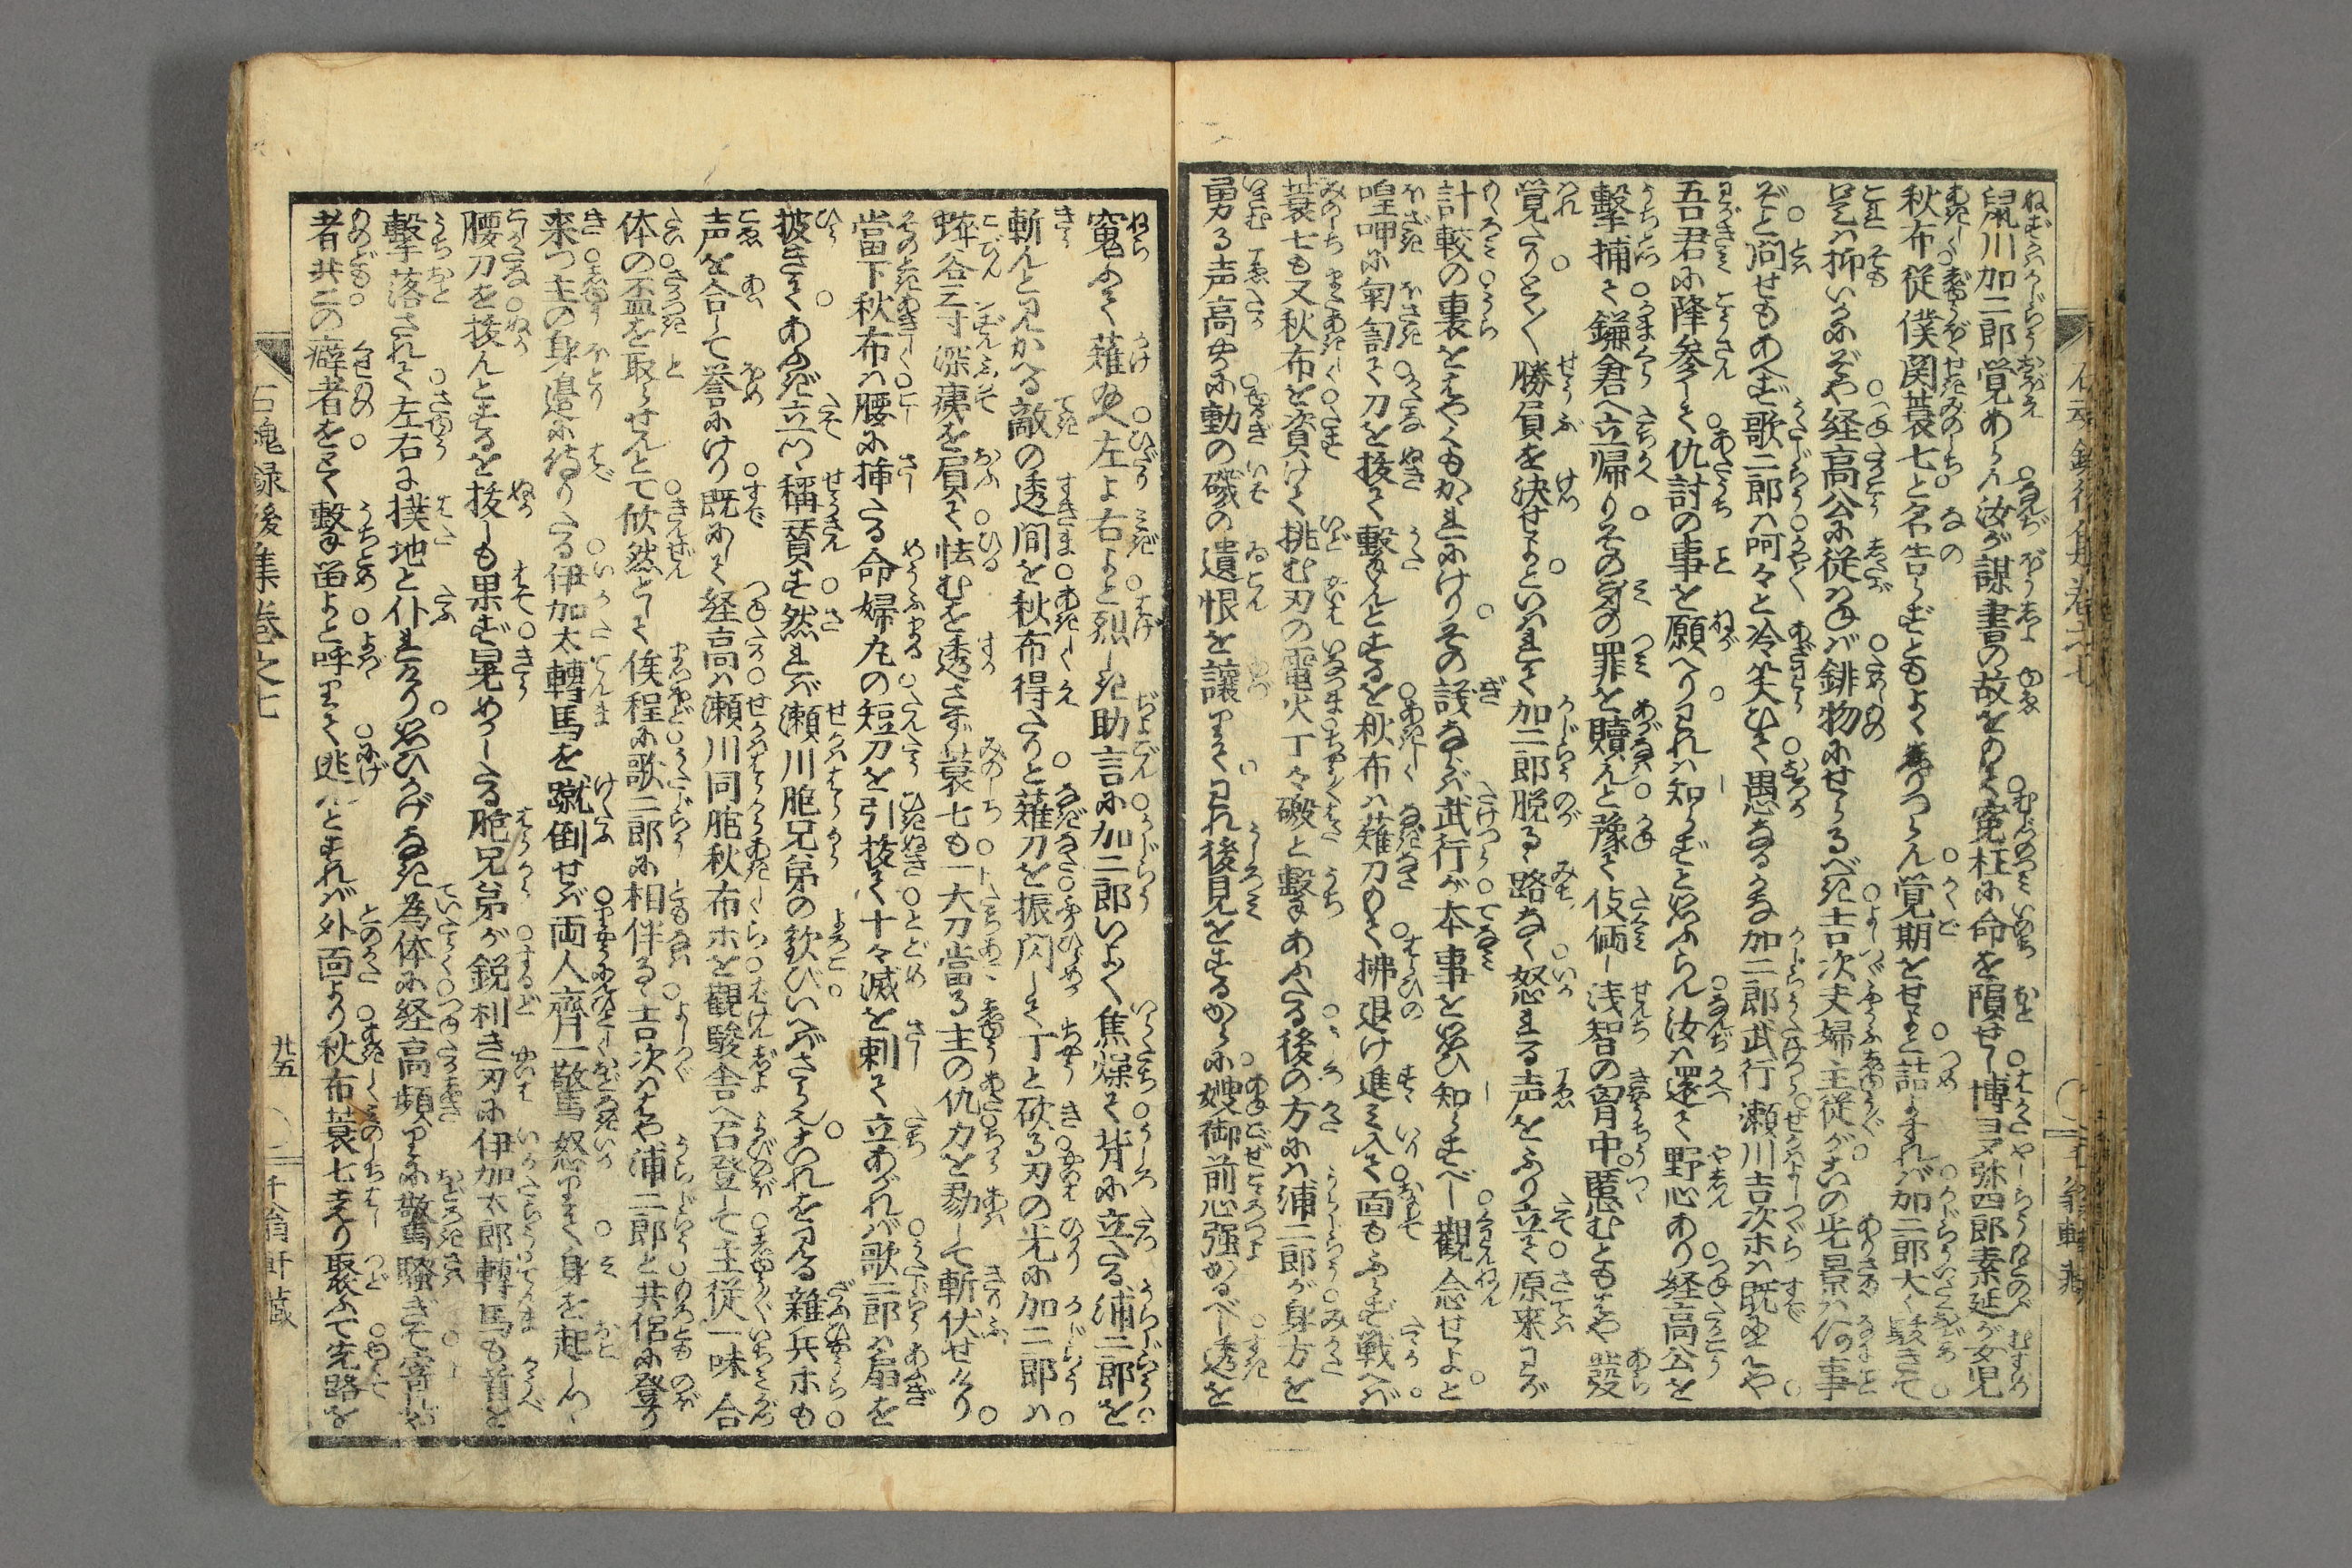 鼠川加二郎覚あらん汝が謀書の故をもて寃枉に命を隕せし博多弥四郎素延が女児
秋布従僕関蓑七と名告らずともよくありつらん覚期をせよと詰よすれば加二郎大く駭きて
是は抑いかにぞや経高公に従はねば鋳物にせらるべき吉次夫婦主従がこの光景は何事
ぞと問せもあへず歌二郎は阿々と冷笑ひて愚なるかな加二郎武行瀬川吉次ホは既にはや
吾君に降参して仇討の事を願へりわれは知らずと思ふらん汝は還て野心あり経高公を
撃捕て鎌倉へ立帰りその身の罪を贖んと豫て伎倆し浅智の胷中匿むともはや發
覚たりとく〳〵勝屓を決せよといはれて加二郎脱るゝ路なく怒れる声をふり立て原来わが
計較の裏をはやくもかゝれにけりその議ならば武行が本事を思ひ知らすべし觀念せよと
喤呷に匉訇て刀を抜て撃んとするを秋布は薙刀もて拂退け進み入て面もふらず戦へば
蓑七も又秋布を資けて挑む刃の電火丁々礑と撃あふたる後の方には浦二郎が身方を
勇る声高やかに動の磯の遺恨を讓りてわれ後見をするからに嫂御前心強かるべし透を
窺ふて薙給へ左よ右よと烈しき助言に加二郎いよ〳〵焦燥て背に立たる浦二郎を
斬んと見かへる敵の透間を秋布得たりと薙刀を振閃して丁と砍る刃の光に加二郎は
蹖谷三寸深痍を肩て怯むを透さず蓑七も一大刀當る主の仇力を勠して斬伏せけり
當下秋布は腰に挿たる命婦丸の短刀を引抜て十々滅を刺て立あがれば歌二郎は扇を
披きてあふぎ立つゝ稱賛す然れば瀬川胞兄弟の歓びいへばさらへこれを見る雜兵ホも
声を合して誉にけり既にして経高は瀬川同胞秋布ホを觀駿舎へ召登して主従一味合
体の盃を取らせんとて欣然として俟程に歌二郎に相伴るゝ吉次ははや浦二郎と共侶に登り
来つ主の身邉に侍りたる伊加太轉馬を蹴倒せば両人齊一驚怒りて身を起しつゝ
腰刀を抜んとするを抜しも果ず晃めかしたる胞兄弟が鋭利き刃に伊加太郎轉馬も首を
撃落されて左右に撲地と仆れたり思ひがけなき為体に経高頻りに驚騒ぎて寄しや
者共この癖者をとく撃畄よと呼りて逃んとすれば外面より秋布蓑七走り聚ふて先路を
石魂録後集巻之七
廿五
千翁軒蔵